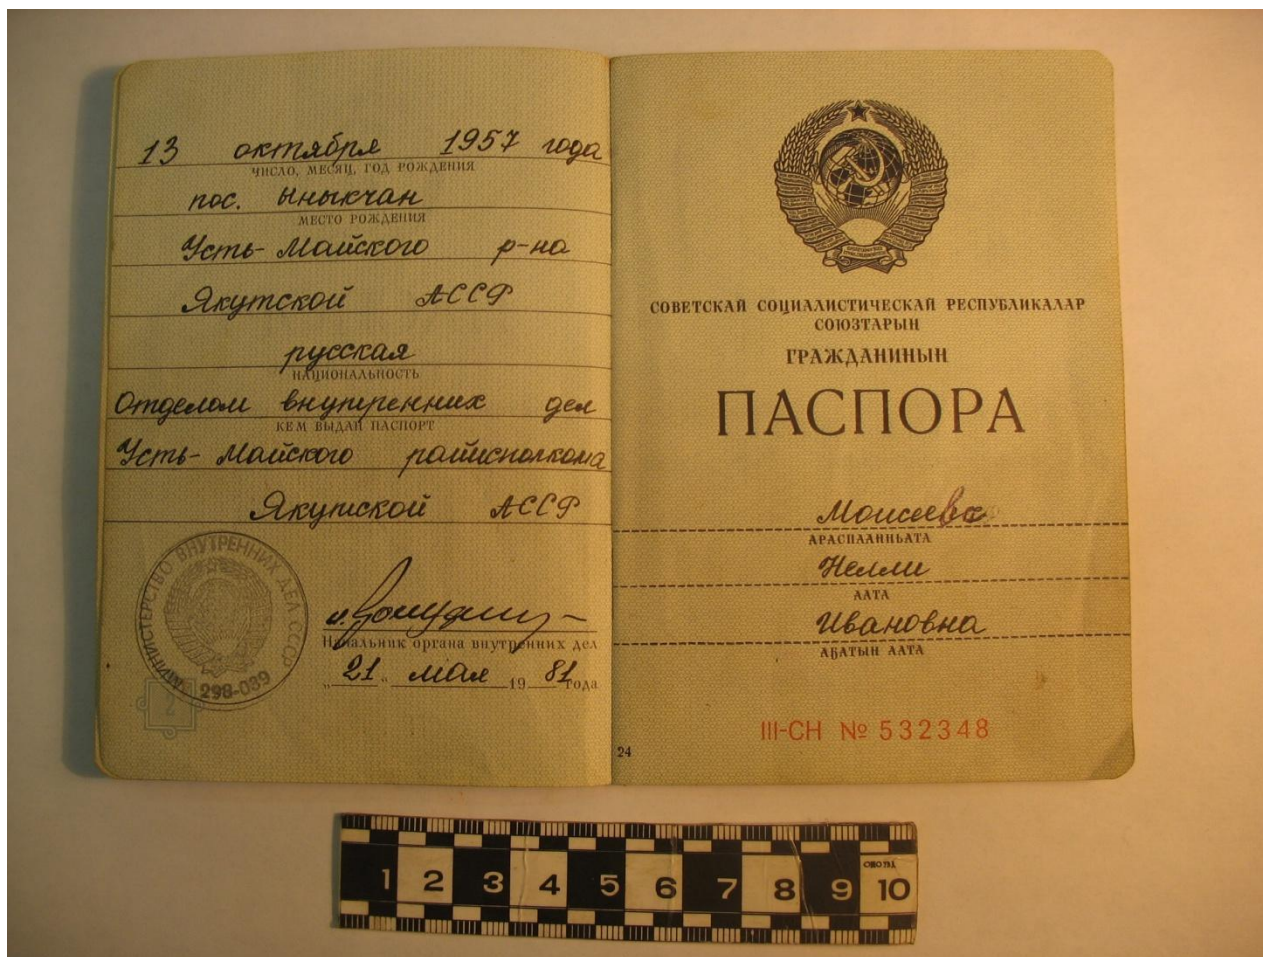 13 октября 1957 года
ЧИСЛО, МЕСЯЦ, ГОД РОЖДЕНИЯ
пос. Ыныкчан
МЕСТО РОЖДЕНИЯ
Усть-Майского р-на
Якутской АССР
русская
НАЦИОНАЛЬНОСТЬ
Отделом внутренних дел
КЕМ ВЫДАН ПАСПОРТ
Усть-Майского райисполкома
Якутской АССР
МИНИСТЕРСТВО ВНУТРЕННИХ ДЕЛ СССР
298-039
Начальник органа внутренних дел
„21“ мая 1981 года
2
СОВЕТСКАЙ СОЦИАЛИСТИЧЕСКАЙ РЕСПУБЛИКАЛАР
СОЮЗТАРЫН
ГРАЖДАНИНЫН
ПАСПОРА
Моисеева
АРАСПААННЬАТА
Нелли
ААТА
Ивановна
АҔАТЫН ААТА
III-СН № 532348
24
1 2 3 4 5 6 7 8 9 10